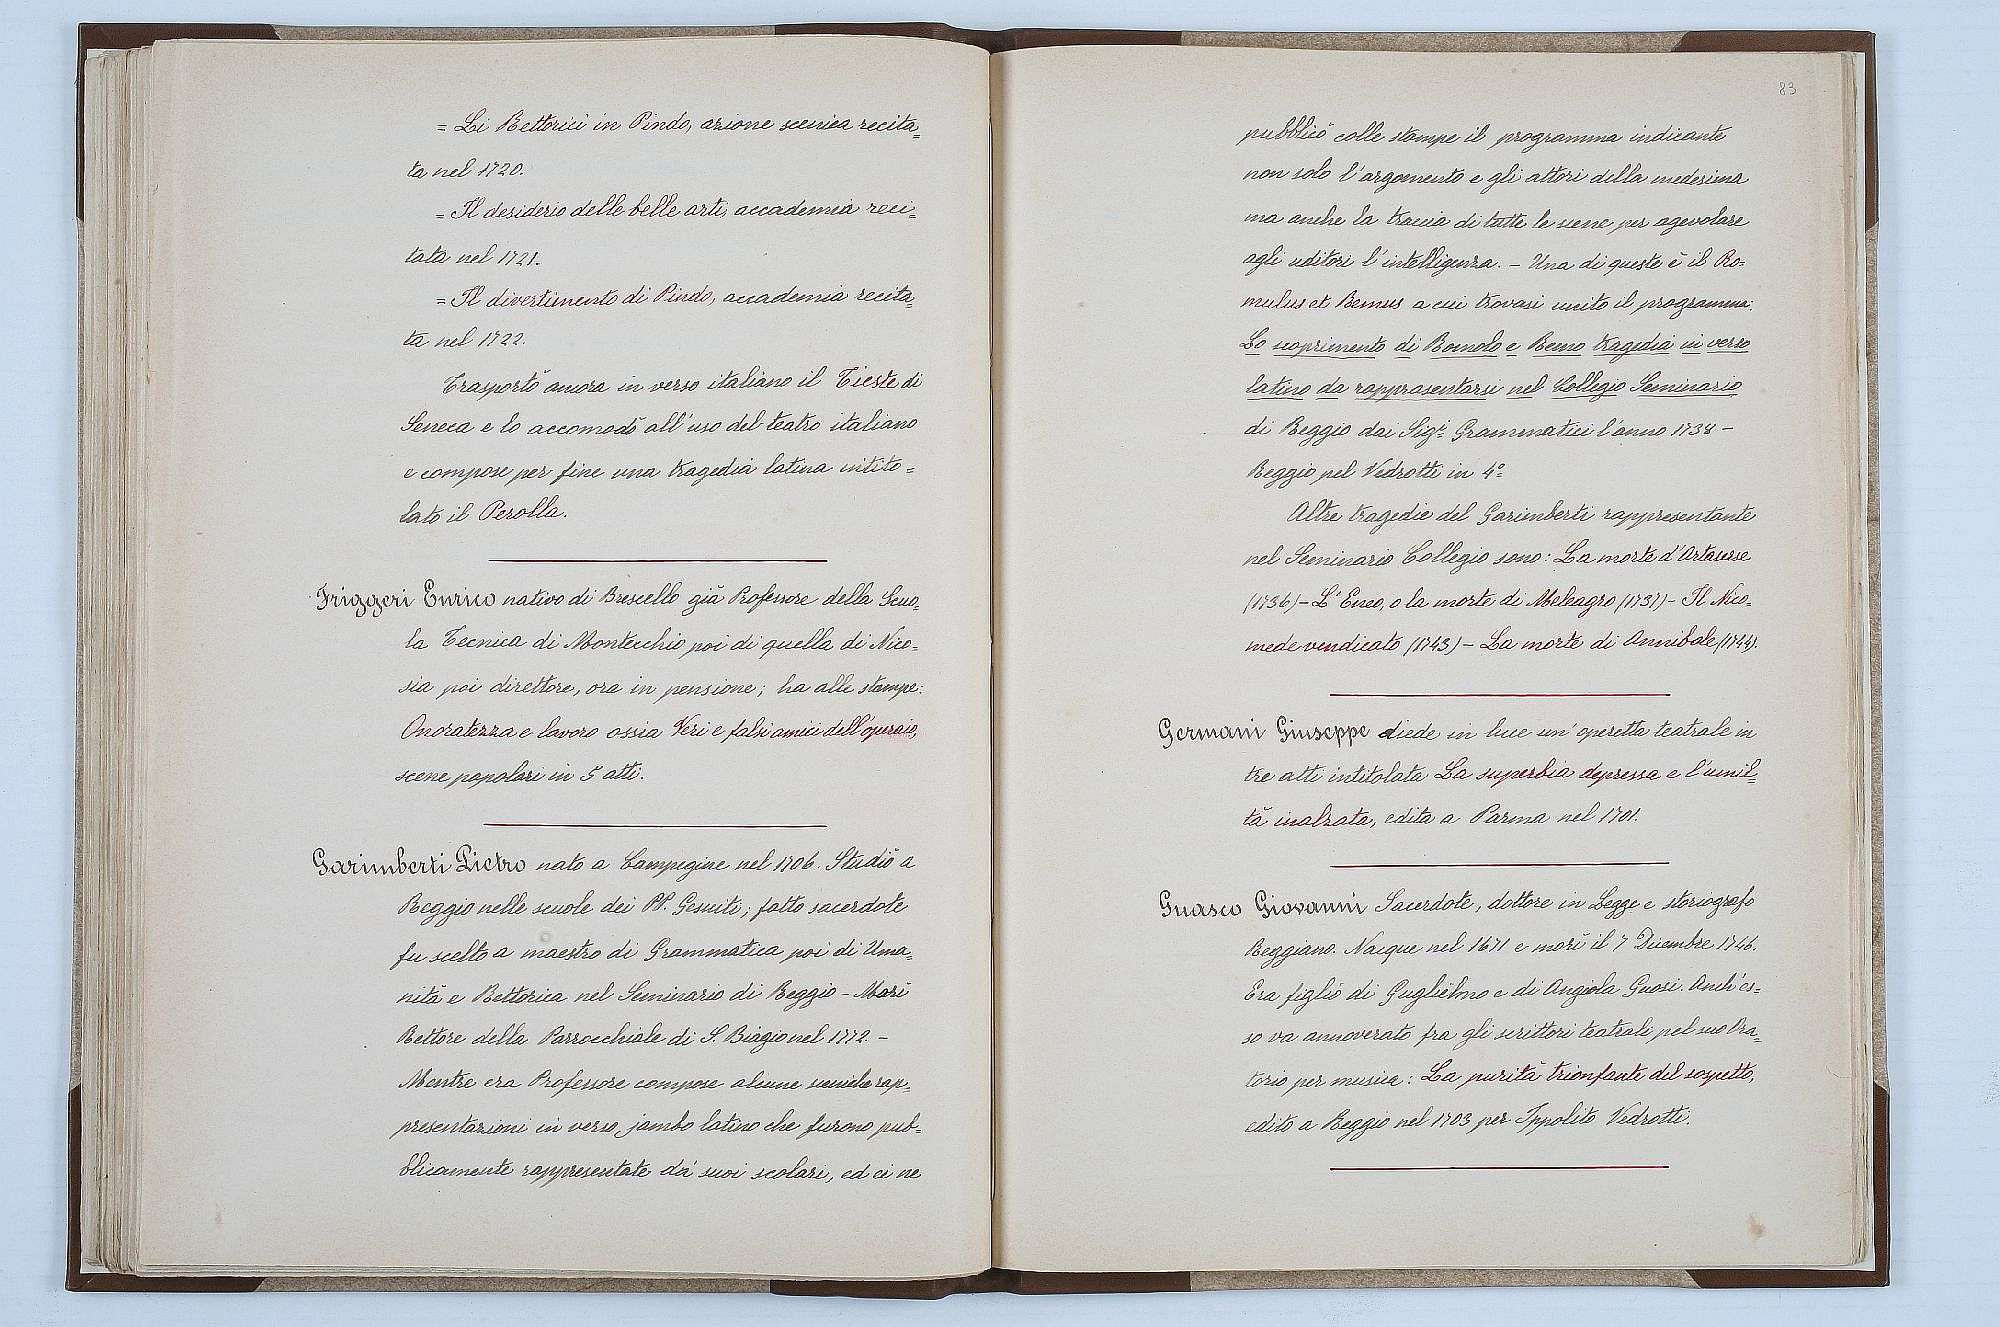 = Li Rettorici in Pindo, azione scenica recita=
ta nel 1720.
= Il desiderio delle belle arti, accademia reci=
tata nel 1721.
= Il divertimento di Pindo, accademia recita=
ta nel 1722.
Trasportò ancora in verso italiano il Tieste di
Seneca e lo accomodò all'uso del teatro italiano
e compose per fine una tragedia latina intito=
lato il Perolla.
Friggeri Enrico nativo di Brescello già Professore della Scuo=
la Tecnica di Montecchio poi di quella di Nico=
sia poi direttore, ora in pensione; ha alle stampe:
Onoratezza e lavoro ossia Veri e falsi amici dell'operaio,
scene popolari in 5 atti.
Garimberti Pietro nato a Campegine nel 1706. Studiò a
Reggio nelle scuole dei PP. Gesuiti; fatto sacerdote
fu scelto a maestro di Grammatica poi di Uma=
nità e Rettorica nel Seminario di Reggio - Morì
Rettore della Parrocchiale di S. Biagio nel 1772. -
Mentre era Professore compose alcune sceniche rap=
presentazioni in verso jambo latino che furono pub=
blicamente rappresentate da' suoi scolari, ed ei ne
83
pubblicò colle stampe il programma indicante
non solo l'argomento e gli attori della medesima
ma anche la traccia di tutte le scene per agevolare
agli uditori l'intelligenza. - Una di queste è il Ro=
mulus et Remus a cui trovasi unito il programma:
Lo scoprimento di Romolo e Remo tragedia in verso
latino da rappresentarsi nel Collegio Seminario
di Reggio dai Sigri Grammatici l'anno 1738 -
Reggio pel Vedrotti in 4º
Altre tragedie del Garimberti rappresentante
nel Seminario Collegio sono: La morte d'Artaserse
(1736) - L'Eneo, o la morte di Meleagro (1737) - Il Nico=
mede vendicato (1743) - La morte di Annibale (1744).
Germani Giuseppe diede in luce un'operetta teatrale in
tre atti intitolata La superbia depressa e l'umil=
tà inalzata, edita a Parma nel 1701.
Guasco Giovanni Sacerdote, dottore in Legge e storiografo
Reggiano. Nacque nel 1671 e morì il 7 Dicembre 1746.
Era figlio di Guglielmo e di Angiola Guasi. Anch'es=
so va annoverato fra gli scrittori teatrali pel suo Ora=
torio per musica: La purità trionfante del sospetto,
edito a Reggio nel 1703 per Ippolito Vedrotti.